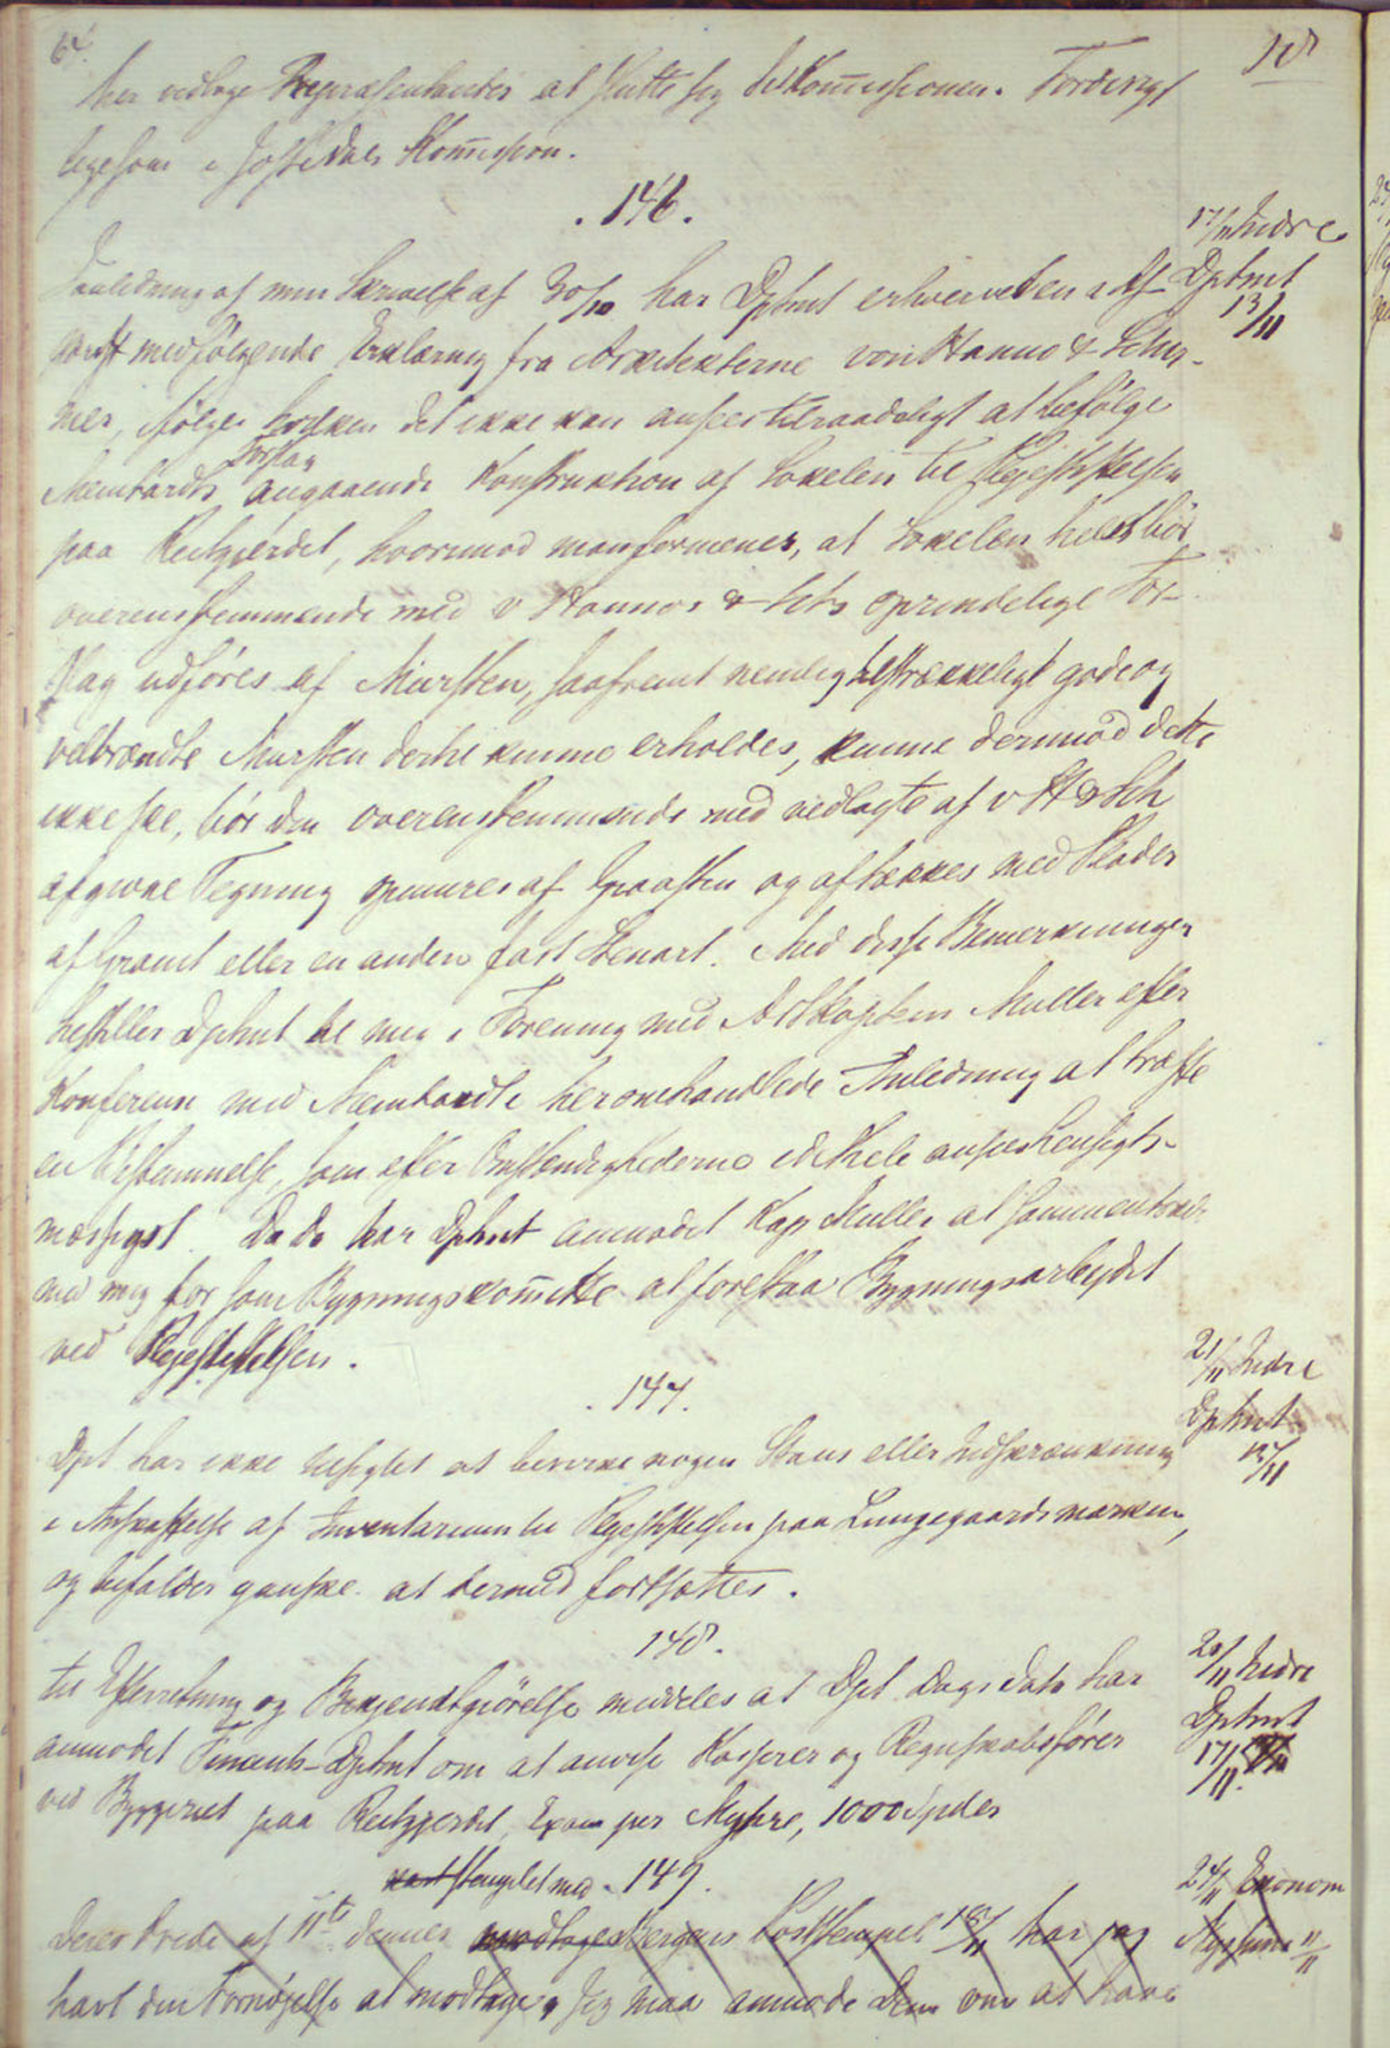 64.
her vedlage Repræsentanter at slutte sig til Kommissionen. Forøvrigt
ligesom i Jostedals Kommission.
. 146.
17/11 Indre
Dptmt
13/11
I anledning af min Skrivelse af 30/10 har Dptmt erhvervet en i Af-
skrift medfølgende Erklæring fra Arkitekterne von Hanno & Schir-
mer, ifølge hvilken det ikke kan ansees tilraadeligt at befølge
Forslag
angaaende Konstruktion af Sokelen til Plejestiftelsen
paa Reitgjerdet, hvorimod man formener, at Sokelen helst bør
overensstemmende med v Hannos & Schs oprindelige For-
slag udføres af Mursten, saafremt nemlig tilstrækkeligt gode og
velbrændte Mursten dertil kunne erholdes, kunne derimod dette
ikke ske, bør den overensstemmende med vedlagte af v H & Sch
afgivne Tegning opmures af Graasten og aftækkes med Plader
af Granit eller en anden fast Stenart. Med disse Bemerkninger
henstiller Dptmt til mig i Forening med Muller efter
Konferense med heromhandlede Anledning at træffe
en Bestemmelse, som efter Omstændighederne i det Hele ansees hensigts-
mæssigst. Da Do har Dptmt anmodet Kap Muller at sammentræde
med mig for som Bygningskommitte at forestaa Bygningsarbejdet
ved Plejestiftelsen.
. 147.
21/11 Indre
Dptmt
Dpt har ikke tilsigtet at bevirke nogen Stans eller Indskrænkning
i Anskaffelse af Inventarium til Plejestiftelsen paa Lungegaardsmarken,
og bifaldes ganske at dermed fortsættes.
148.
20/11 Indre
Dptmt
17/11.
til Efterretning og Bekjendtgjørelse meddeles at Dpt Dags Dato har
anmodet Finants-Dptmt om at anvise Kasserer og Regnskabsfører
ved Byggeriet paa Reitgjerdet, Exam jur Myhre, 1000 Spdlr
stemplet med 149.
24/11 Økonom
11/11
Deres Brede af 11te dennes modtaget Bergens Poststempel 18/11 har jeg
havt den Fornøjelse at modtage, Jeg maa anmode Dem om at have